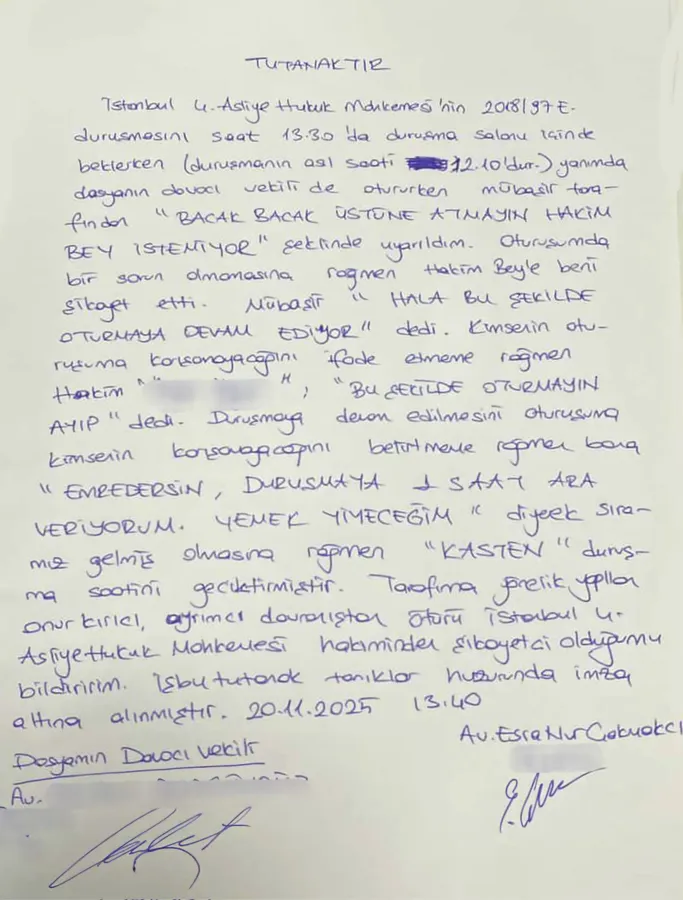 TUTANAKTIR
İstanbul 4. Asliye Hukuk Mahkemesi'nin 2018/97 E.
duruşmasını saat 13.30'da duruşma salonu içinde
beklerken (duruşmanın asıl saati 12.10'dur.) yanımda
dosyanın davacı vekili de otururken mübaşir tara-
fından "BACAK BACAK ÜSTÜNE ATMAYIN HAKİM
BEY İSTEMİYOR" şeklinde uyarıldım. Oturuşumda
bir sorun olmamasına rağmen Hakim Bey'e beni
şikayet etti. Mübaşir "HALA BU ŞEKİLDE
OTURMAYA DEVAM EDİYOR" dedi. Kimsenin otu-
ruşuma karışamayacağını ifade etmeme rağmen
Hakim " ", "BU ŞEKİLDE OTURMAYIN
AYIP" dedi. Duruşmaya devam edilmesini oturuşuma
kimsenin karışamayacağını belirtmeme rağmen bana
"EMREDERSİN, DURUŞMAYA 1 SAAT ARA
VERİYORUM. YEMEK YİYECEĞİM" diyerek sıra-
mız gelmiş olmasına rağmen "KASTEN" duruş-
ma saatini geciktirmiştir. Tarafıma yönelik yapılan
onur kırıcı, ayrımcı davranıştan ötürü İstanbul 4.
Asliye Hukuk Mahkemesi hakiminden şikayetçi olduğumu
bildiririm. İşbu tutanak tanıklar huzurunda imza
altına alınmıştır. 20.11.2025 13.40
Av. Esra Nur
Dosyamın Davacı Vekili
Av.